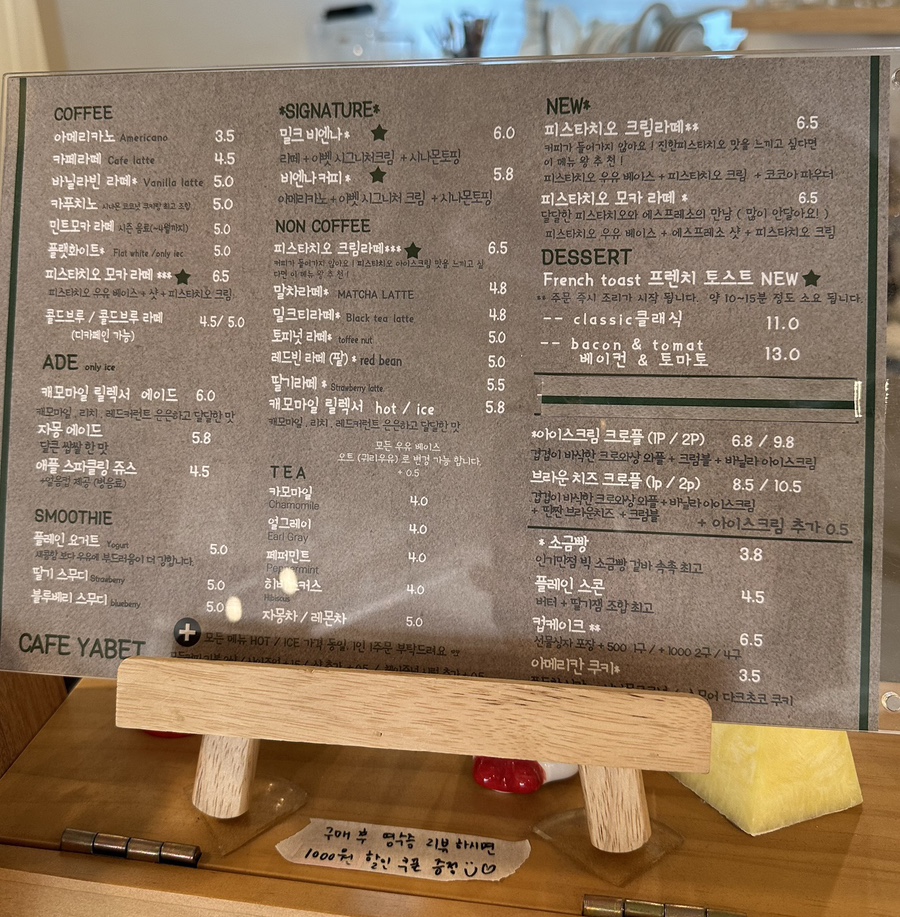 COFFEE
아메리카노 Americano 3.5
카페라떼 Cafe latte 4.5
바닐라빈 라떼* Vanilla latte 5.0
카푸치노 5.0
민트모카 라떼 5.0
플랫화이트* Flat white /only iec 5.0
피스타치오 모카 라떼 ***★ 6.5
피스타치오 우유 베이스 + 샷 + 피스타치오 크림
콜드브루 / 콜드브루 라떼 4.5/ 5.0
(디카페인 가능)
ADE only ice
캐모마일 릴렉서 에이드 6.0
캐모마일 , 리치 , 레드커런트 은은하고 달달한 맛
자몽 에이드 5.8
달콘 쌉쌀 한 맛
애플 스파클링 쥬스 4.5
+얼음컵 제공 (병음료)
SMOOTHIE
플레인 요거트 Yogurt 5.0
새콤함 보다 우유에 부드러움이 더 강합니다.
딸기 스무디 Strawberry 5.0
블루베리 스무디 blueberry 5.0
CAFE YABET
*SIGNATURE*
밀크 비엔나* ★ 6.0
라떼 + 야벳 시그니처크림 + 시나몬토핑
비엔나커피* ★ 5.8
아메리카노 + 야벳 시그니처 크림 + 시나몬토핑
NON COFFEE
피스타치오 크림라떼***★ 6.5
커피가 들어가지 않아요 ! 피스타치오 아이스크림 맛을 느끼고 싶
다면 이 메뉴 왕 추천 !
말차라떼* MATCHA LATTE 4.8
밀크티라떼* Black tea latte 4.8
토피넛 라떼* toffee nut 5.0
레드빈 라떼 (팥) * red bean 5.0
딸기라떼 * Strawberry latte 5.5
캐모마일 릴렉서 hot / ice 5.8
캐모마일 , 리치 , 레드커런트 은은하고 달달한 맛
모든 우유 베이스
오트 (귀리우유) 로 변경 가능 합니다.
+ 0.5
TEA
카모마일 4.0
Chamomile
얼그레이 4.0
Earl Gray
페퍼민트 4.0
Peppermint
히비스커스 4.0
Hibiscus
자몽차 / 레몬차 5.0
+ 모든 메뉴 HOT / ICE 가격 동일, 1인 1주문 부탁드려요
NEW*
피스타치오 크림라떼** 6.5
커피가 들어가지 않아요 ! 진한피스타치오 맛을 느끼고 싶다면
이 메뉴 왕 추 천 !
피스타치오 우유 베이스 + 피스타치오 크림 + 코코아 파우더
피스타치오 모카 라떼 * 6.5
달달한 피스타치오와 에스프레소의 만남 ( 많이 안달아요! )
피스타치오 우유 베이스 + 에스프레소 샷 + 피스타치오 크림
DESSERT
French toast 프렌치 토스트 NEW★
** 주문 즉시 조리가 시작 됩니다. 약 10~15분 정도 소요 됩니다.
-- classic클래식 11.0
-- bacon & tomat
베이컨 & 토마토 13.0
*아이스크림 크로플 (1P / 2P) 6.8 / 9.8
겉겉이 바삭한 크로와상 와플 + 크럼블 + 바닐라 아이스크림
브라운 치즈 크로플 (1p / 2p) 8.5 / 10.5
겉겉이 바삭한 크로와상 와플 + 바닐라 아이스크림
+ 단짠 브라운치즈 + 크럼블
+ 아이스크림 추가 0.5
* 소금빵 3.8
인기만점 빅 소금빵 겉바 촉촉 최고
플레인 스콘 4.5
버터 + 딸기잼 조합 최고
컵케이크 ** 6.5
선물상자 포장 + 500 1구 / + 1000 2구 / 4구
아메리칸 쿠키* 3.5
스모어 다크초코 쿠키
구매 후 영수증 리뷰하시면
1000원 할인 쿠폰 증정